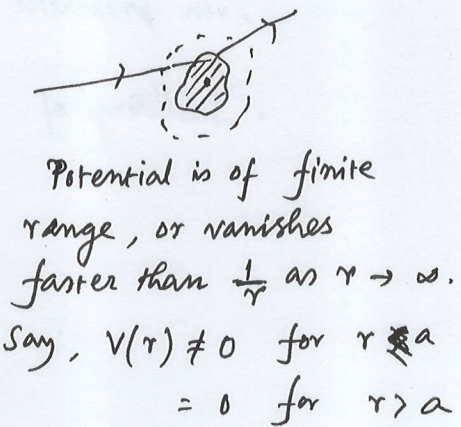 Potential is of finite
range, or vanishes
faster than 1/r as r → ∞.
Say, V(r) ≠ 0 for r < a
= 0 for r > a